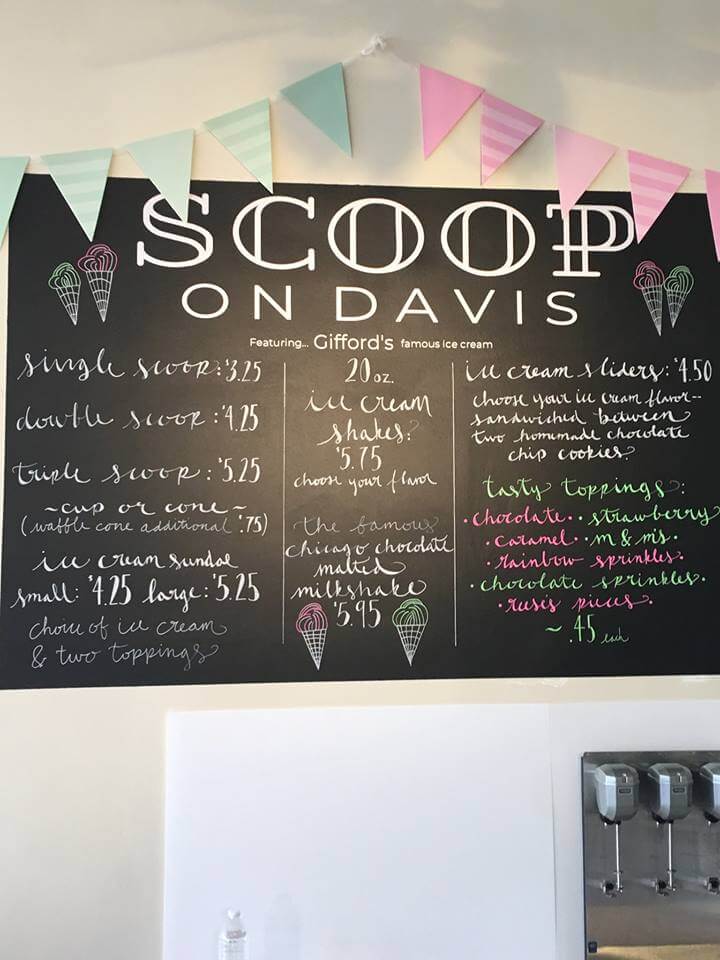 SCOOP
ON DAVIS
Featuring... Gifford's famous ice cream
single scoop: $3.25
double scoop: $4.25
triple scoop: $5.25
~cup or cone~
(waffle cone additional .75)
ice cream sundae
small: $4.25 large: $5.25
choice of ice cream
& two toppings
20 oz.
ice cream
shakes:
$5.75
choose your flavor
the famous
chicago chocolate
malted
milkshake
$5.95
ice cream sliders: $4.50
choose your ice cream flavor--
sandwiched between
two homemade chocolate
chip cookies.
tasty toppings:
•chocolate• •strawberry
•caramel• •m & m's•
•rainbow sprinkles•
•chocolate sprinkles•
•reese's pieces•
~ .45 each